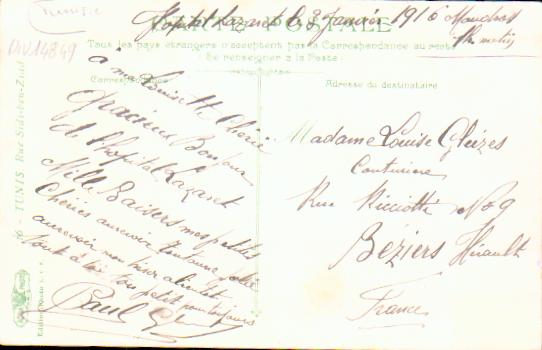 Tunisie
Hopital Lazaret le 3 Janvier 1916
DIV 14849
CARTE POSTALE
Tous les pays étrangers n'acceptent pas la Correspondance au recto
Se renseigner à la Poste
Correspondance
Adresse du destinataire
a ma Louisette Cherie
Gracieux Bonjour
de l'hopital Lazaret
Mille Baisers mes petites
Chéries aurevoir
aurevoir mon
tout a toi ton petit pour toujours
Paul
Madame Louise Gleizes
Couturiere
Rue Ricciotti No 9
Béziers Hérault
France
6 - TUNIS Rue Sidi-ben-Ziad